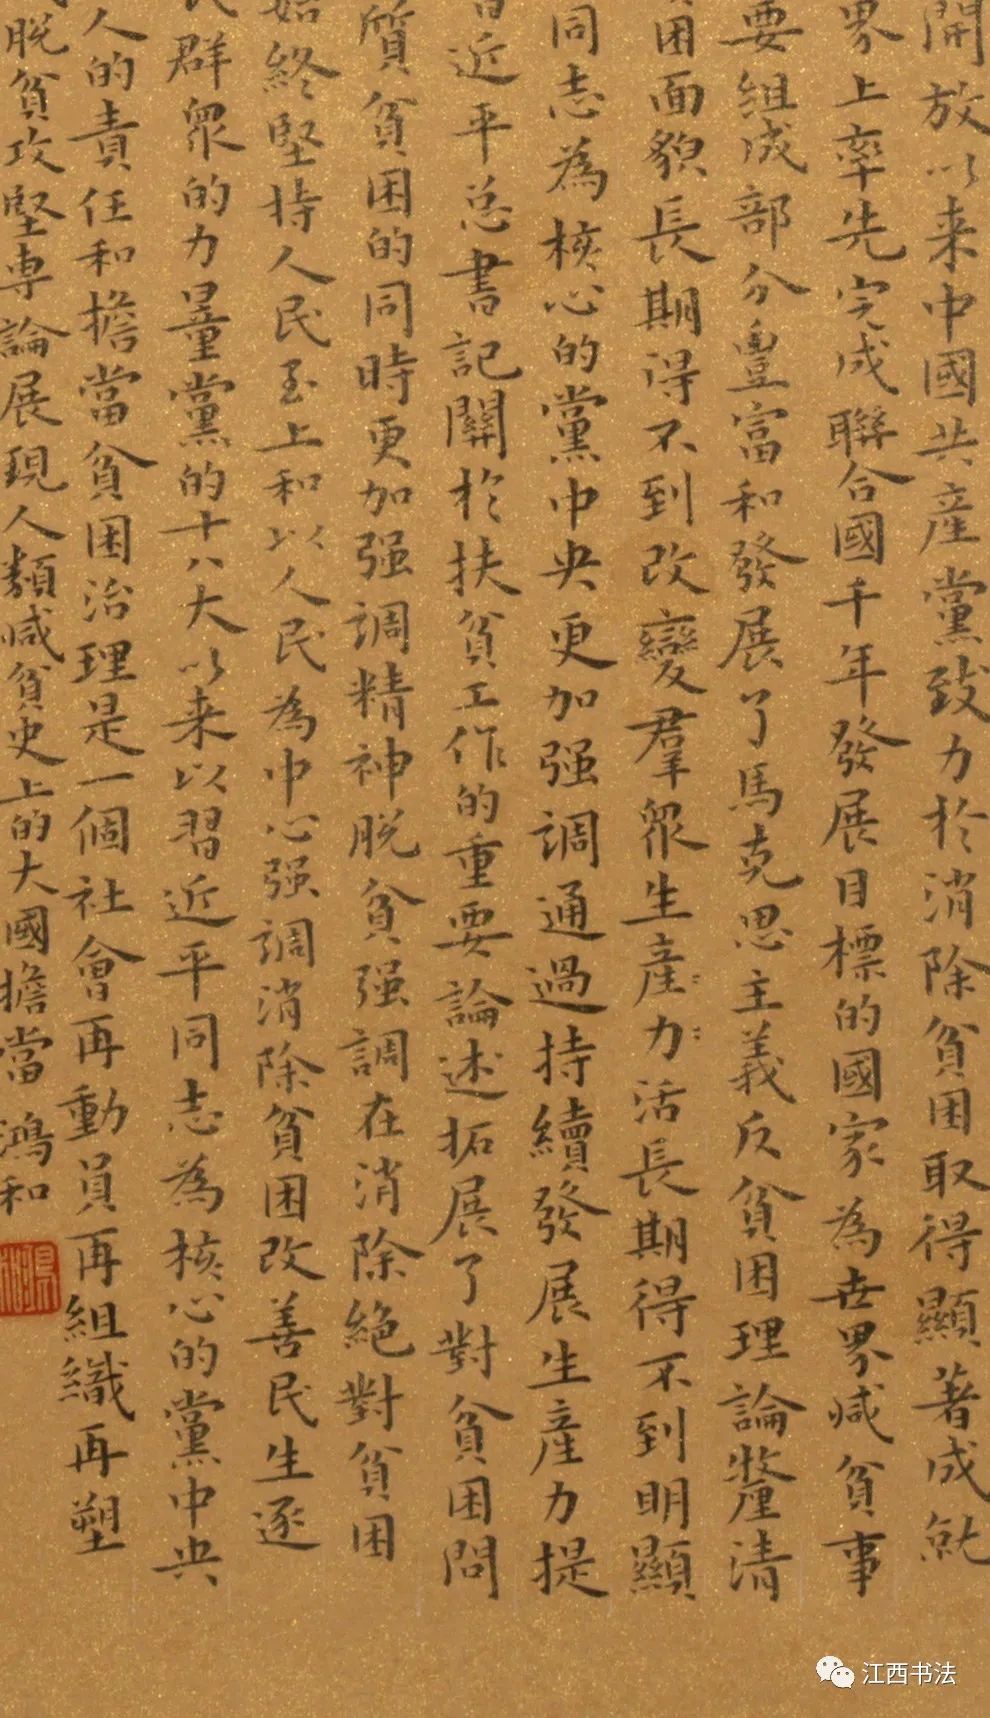 開放以来中國共産黨致力於消除貧困取得顯著成就
界上率先完成聯合國千年發展目標的國家為世界减貧事
要組成部分豊富和發展了馬克思主義反貧困理論釐清
困面貌長期得不到改變羣衆生産力活長期得不到明顯
同志為核心的黨中央更加强調通過持續發展生産力提
習近平总書記關於扶貧工作的重要論述拓展了對貧困問
質貧困的同時更加强調精神脱貧强調在消除絶對貧困
始終堅持人民至上和以人民為中心强調消除貧困改善民生逐
民群衆的力量黨的十八大以来以習近平同志為核心的黨中央
人的責任和擔當貧困治理是一個社會再動員再組織再塑
脱貧攻堅專論展現人類减貧史上的大國擔當 鴻和
江西书法